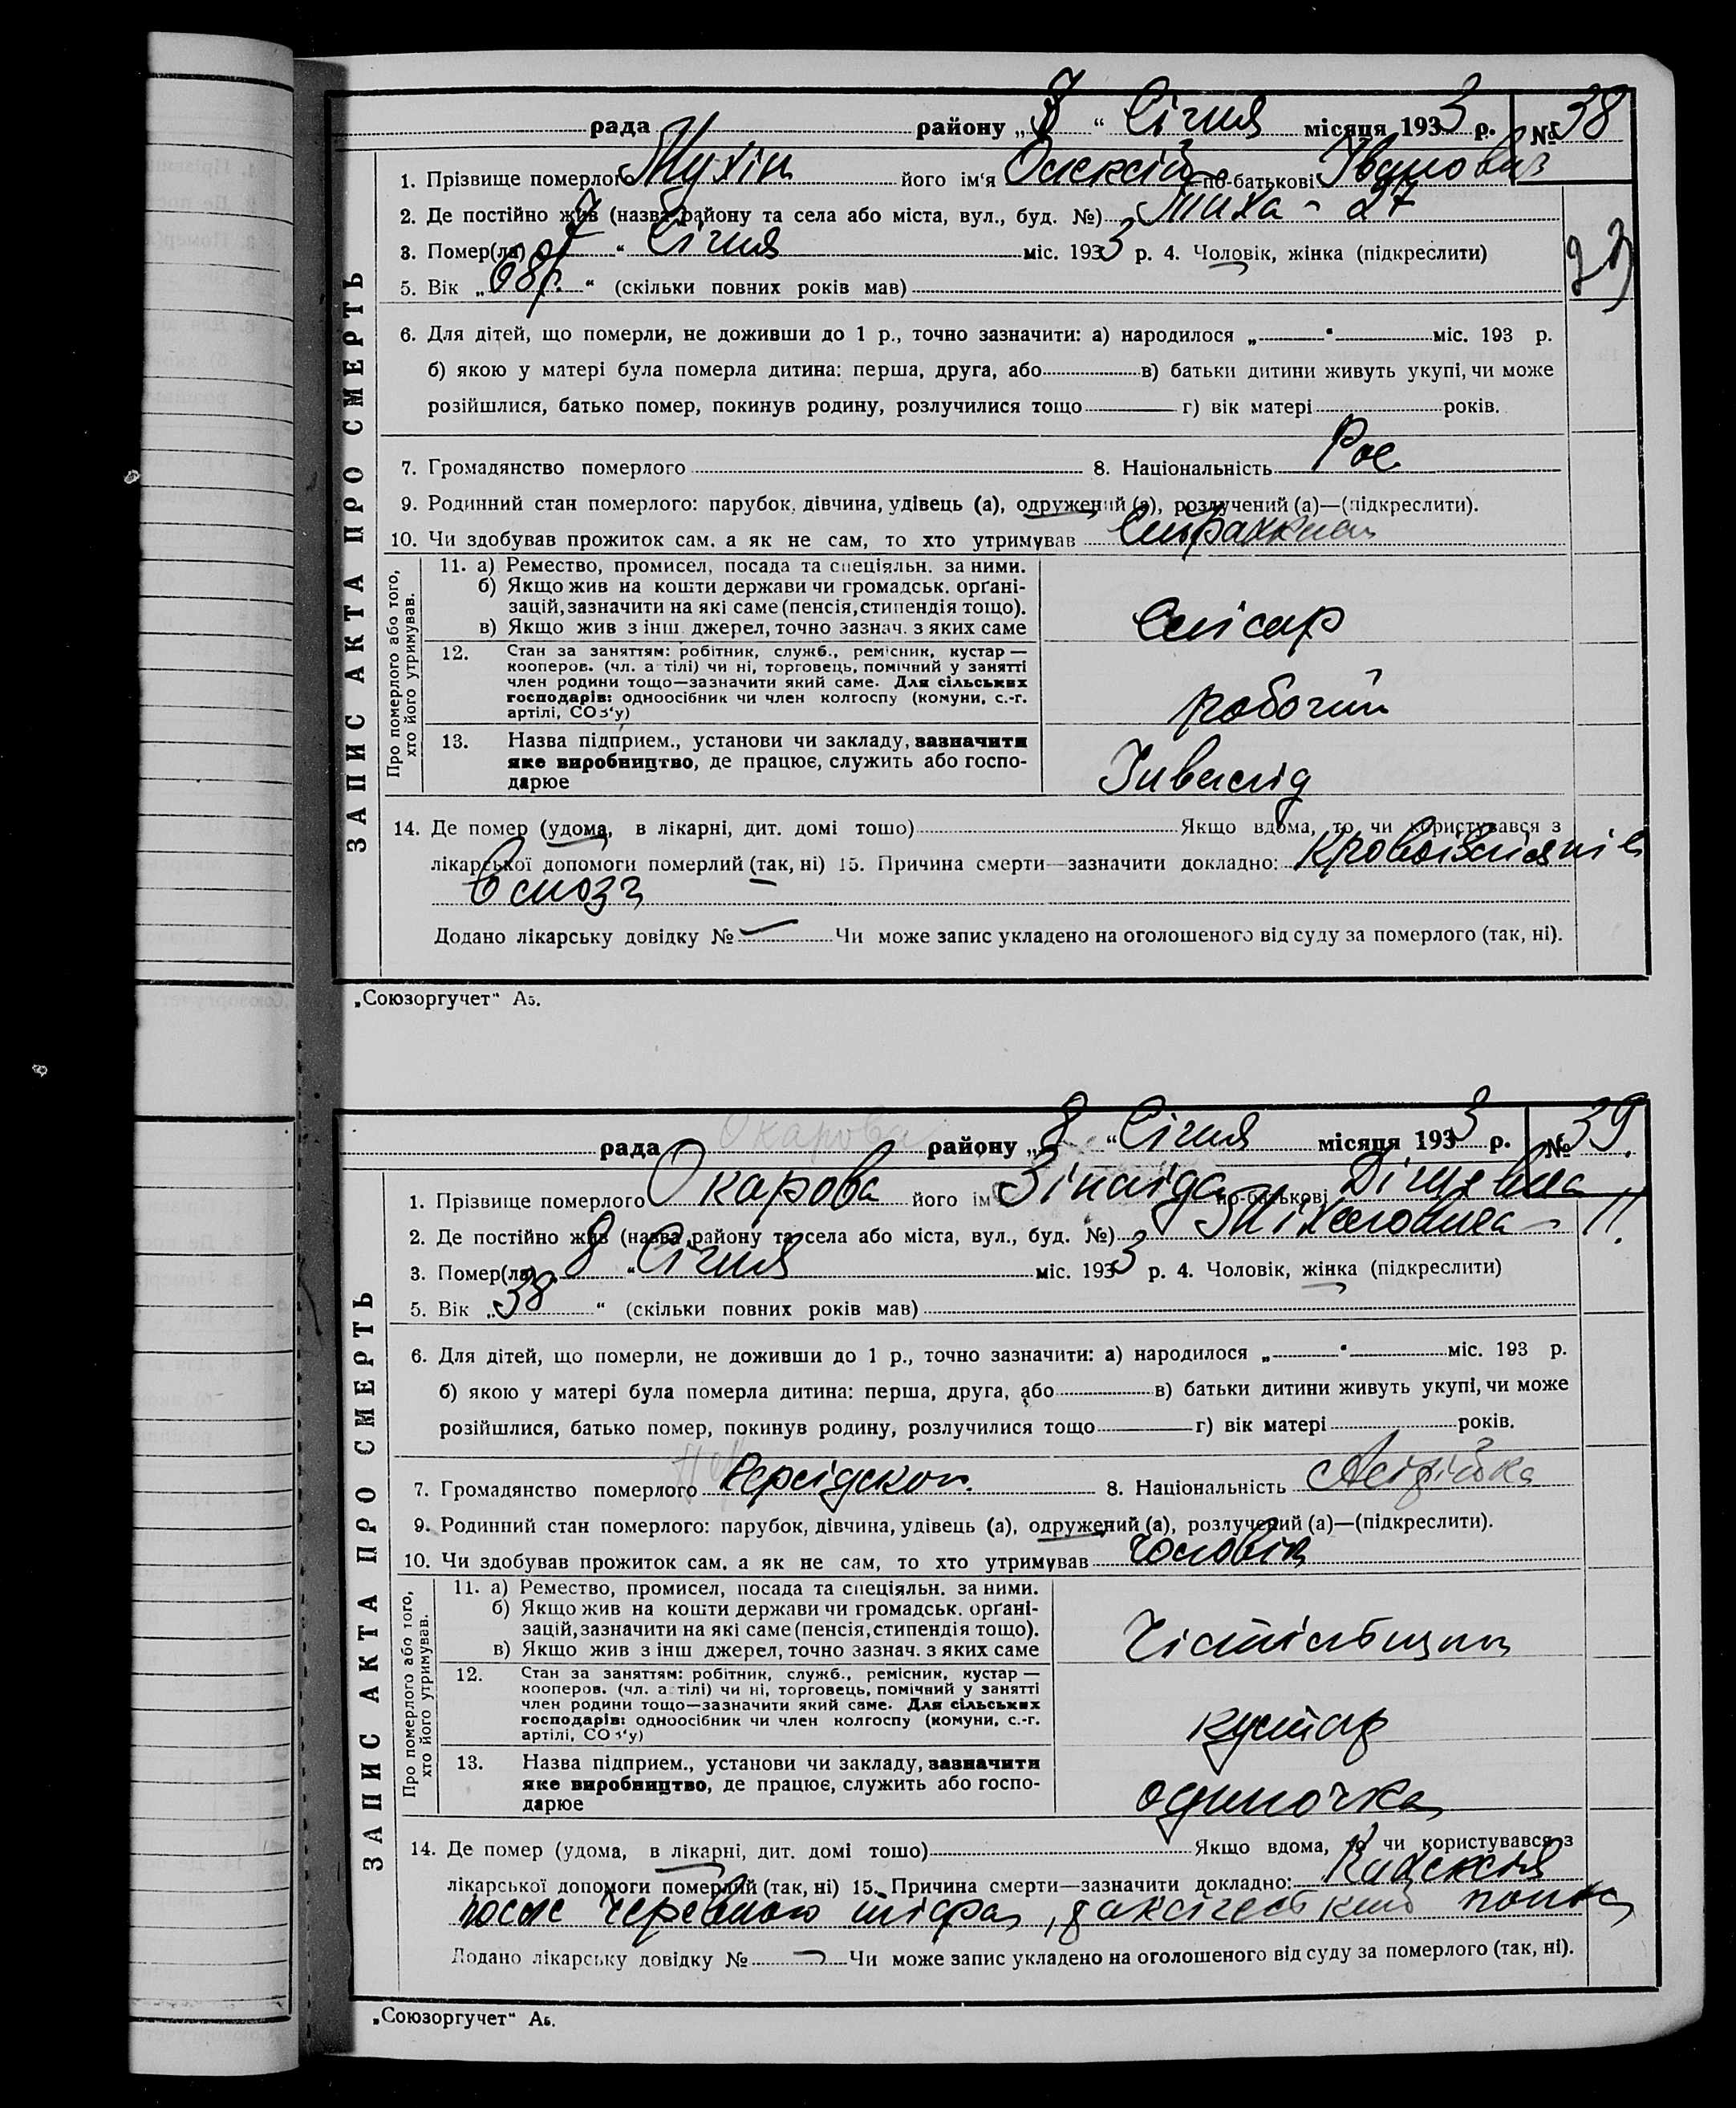 рада район у „8“ Січня місяця 1933 р. № 38
1. Прізвище померлого Мухін його ім'я Олексій по-батькові Іванович
2. Де постійно жив (назва району та села або міста, вул., буд. №) Тиха - 27
3. Помер(ла) „7“ Січня міс. 1933 р. 4. Чоловік, жінка (підкреслити)
5. Вік „68р.“ (скільки повних років мав)
6. Для дітей, що померли, не доживши до 1 р., точно зазначити: а) народилося „ “ міс. 193 р.
б) якою у матері була померла дитина: перша, друга, або в) батьки дитини живуть укупі, чи може
розійшлися, батько помер, покинув родину, розлучилися тощо г) вік матері років.
7. Громадянство померлого 8. Національність Рос.
9. Родинний стан померлого: парубок, дівчина, удівець (а), одружений (а), розлучений (а)—(підкреслити).
10. Чи здобував прожиток сам, а як не сам, то хто утримував
Про померлого або того, хто його утримував.
11. а) Ремество, промисел, посада та спеціяльн. за ними.
б) Якщо жив на кошти держави чи громадськ. орґані-
зацій, зазначити на які саме (пенсія, стипендія тощо).
в) Якщо жив з інш. джерел, точно зазнач. з яких саме
Слісар
12. Стан за заняттям: робітник, служб., ремісник, кустар —
кооперов. (чл. артілі) чи ні, торговець, помічний у занятті
член родини тощо—зазначити який саме. Для сільських
господарів: одноосібник чи член колгоспу (комуни, с.-г.
артілі, СОЗ'у)
робочий
13. Назва підприєм., установи чи закладу, зазначити
яке виробництво, де працює, служить або госпо-
дарює
Інвалід
14. Де помер (удома, в лікарні, дит. домі тощо) Якщо вдома, то чи користувався з
лікарської допомоги померлий (так, ні) 15. Причина смерти—зазначити докладно: Кровоізліяніє
в мозг
Додано лікарську довідку № — Чи може запис укладено на оголошеного від суду за померлого (так, ні).
ЗАПИС АКТА ПРО СМЕРТЬ
„Союзоргучет“ А5.
Окарова
рада району „8“ Січня місяця 1933 р. № 39.
1. Прізвище померлого Окарова його ім'я Зінаїда по-батькові
2. Де постійно жив (назва району та села або міста, вул., буд. №) - 11.
3. Помер(ла) „8“ Січня міс. 1933 р. 4. Чоловік, жінка (підкреслити)
5. Вік „38“ (скільки повних років мав)
6. Для дітей, що померли, не доживши до 1 р., точно зазначити: а) народилося „ “ міс. 193 р.
б) якою у матері була померла дитина: перша, друга, або в) батьки дитини живуть укупі, чи може
розійшлися, батько помер, покинув родину, розлучилися тощо г) вік матері років.
7. Громадянство померлого Персідског. 8. Національність Асірійка
9. Родинний стан померлого: парубок, дівчина, удівець (а), одружений (а), розлучений (а)—(підкреслити).
10. Чи здобував прожиток сам, а як не сам, то хто утримував Чоловік
Про померлого або того, хто його утримував.
11. а) Ремество, промисел, посада та спеціяльн. за ними.
б) Якщо жив на кошти держави чи громадськ. орґані-
зацій, зазначити на які саме (пенсія, стипендія тощо).
в) Якщо жив з інш. джерел, точно зазнач. з яких саме
Чістільщик
12. Стан за заняттям: робітник, служб., ремісник, кустар —
кооперов. (чл. артілі) чи ні, торговець, помічний у занятті
член родини тощо—зазначити який саме. Для сільських
господарів: одноосібник чи член колгоспу (комуни, с.-г.
артілі, СОЗ'у)
кустар
13. Назва підприєм., установи чи закладу, зазначити
яке виробництво, де працює, служить або госпо-
дарює
одиночка
14. Де помер (удома, в лікарні, дит. домі тощо) Якщо вдома, то чи користувався з
лікарської допомоги померлий (так, ні) 15. Причина смерти—зазначити докладно: Кахексія
после черевного тіфа,
Додано лікарську довідку № — Чи може запис укладено на оголошеного від суду за померлого (так, ні).
ЗАПИС АКТА ПРО СМЕРТЬ
„Союзоргучет“ А5.